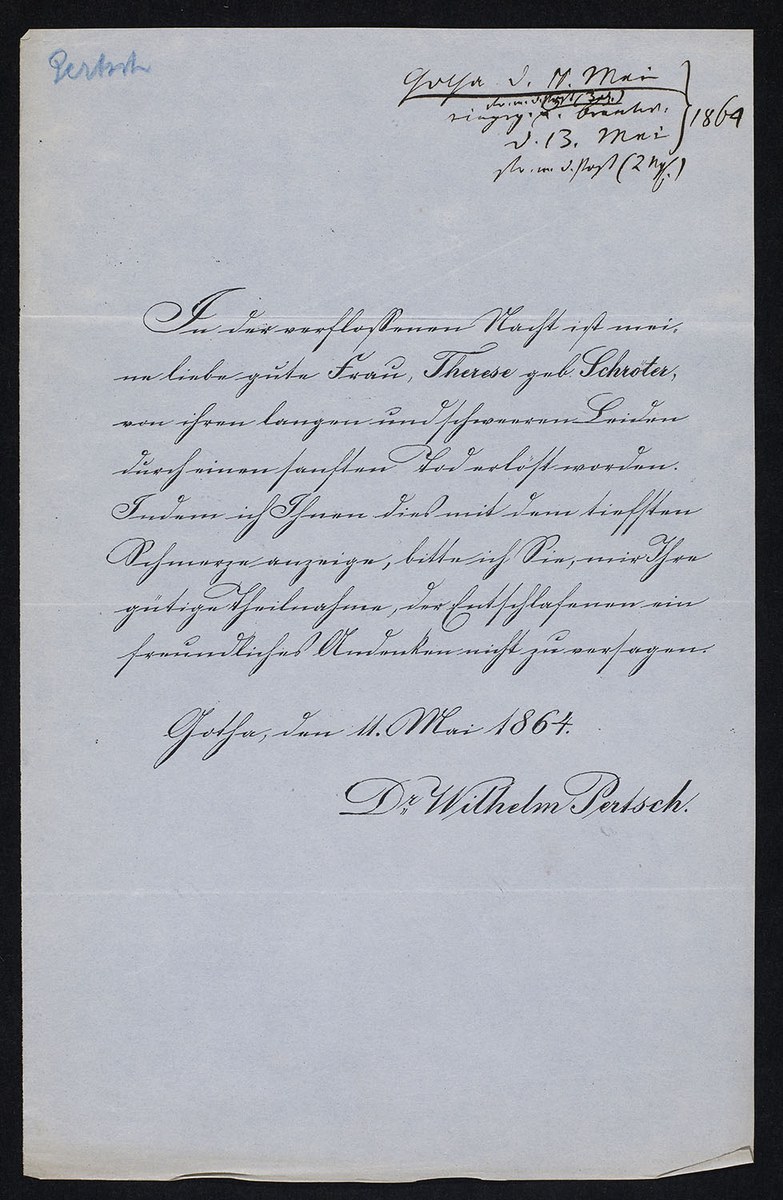 Pertsch
Gotha d. 11. Mai
fr. m. d. Post (3 gr.)
eingeg. u. beantw. } 1864
d. 13. Mai
fr. m. d. Post (2 Ngr.)
In der verflossenen Nacht ist mei-
ne liebe gute Frau, Therese geb. Schröter,
von ihren langen und schweeren Leiden
durch einen sanften Tod erlöst worden.
Indem ich Ihnen dies mit dem tiefsten
Schmerze anzeige, bitte ich Sie, mir Ihre
gütige Theilnahme, der Entschlafenen ein
freundliches Andenken nicht zu versagen.
Gotha, den 11. Mai 1864.
Dr. Wilhelm Pertsch.